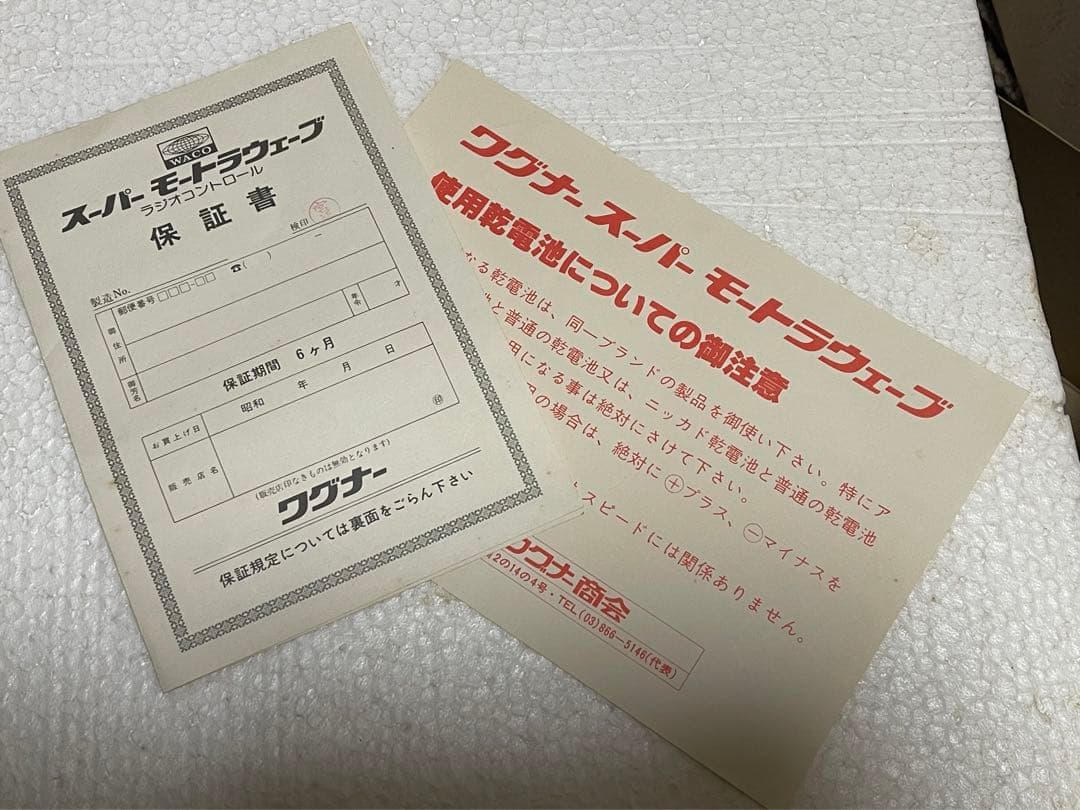 WACO
スーパー モートラウェーブ
ラジオコントロール
保証書
検印
製造No.
郵便番号□□□-□□ ☎( ) －
御住所
年令 才
御芳名
保証期間 6ヶ月
お買上げ日 昭和 年 月 日
販売店名 ㊞
(販売店印なきものは無効となります)
ワグナー
保証規定については裏面をごらん下さい
ワグナー スーパー モートラウェーブ
使用乾電池についての御注意
なる乾電池は、同一ブランドの製品を御使い下さい。特にア
と普通の乾電池又は、ニッカド乾電池と普通の乾電池
になる事は絶対にさけて下さい。
の場合は、絶対に⊕プラス、⊖マイナスを
スピードには関係ありません。
ワグナー商会
2の14の4号・TEL(03)866-5146(代表)